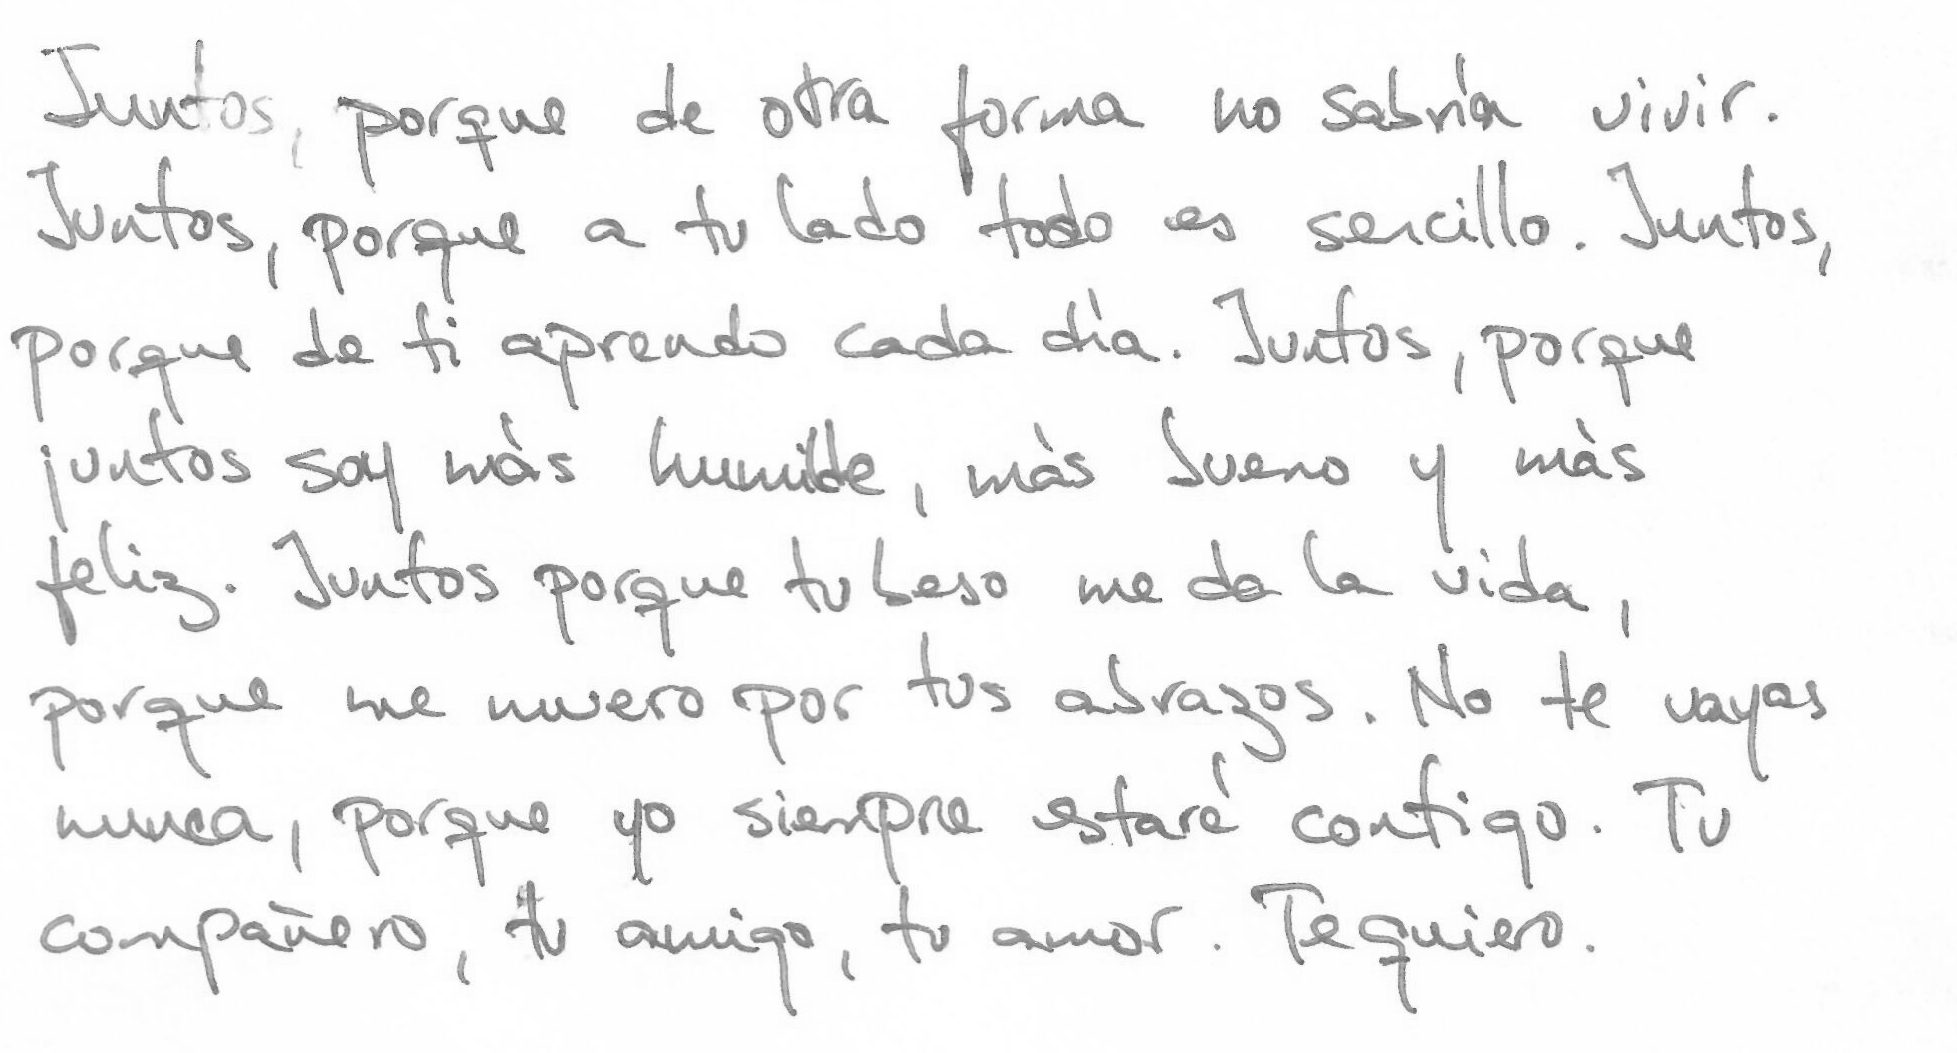 Juntos, porque de otra forma no sabría vivir.
Juntos, porque a tu lado todo es sencillo. Juntos,
porque de ti aprendo cada día. Juntos, porque
juntos soy más humilde, más bueno y más
feliz. Juntos porque tu beso me da la vida,
porque me muero por tus abrazos. No te vayas
nunca, porque yo siempre estaré contigo. Tu
compañero, tu amigo, tu amor. Te quiero.